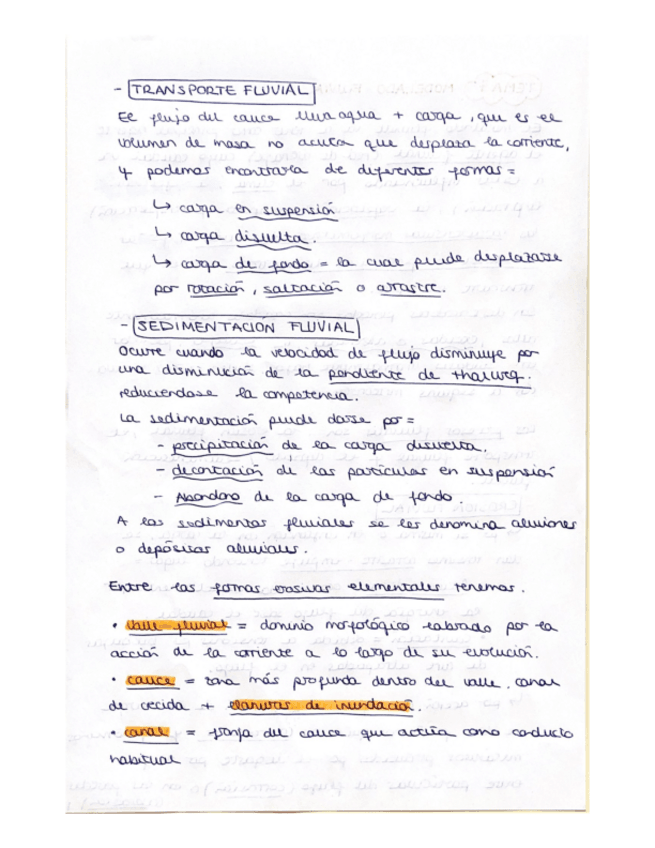 - TRANSPORTE FLUVIAL
El flujo del cauce lleva agua + carga, que es el
volumen de masa no acuosa que desplaza la corriente,
y podemos encontrarla de diferentes formas =
↳ carga en suspensión
↳ carga disuelta.
↳ carga de fondo = la cual puede desplazarse
por rotación, saltación o arrastre.
- SEDIMENTACION FLUVIAL
Ocurre cuando la velocidad de flujo disminuye por
una disminución de la pendiente de thalweg.
reduciendose la competencia.
La sedimentación puede darse por =
- precipitación de la carga disuelta.
- decantación de las partículas en suspensión
- Abandono de la carga de fondo.
A los sedimentos fluviales se les denomina aluviones
o depósitos aluviales.
Entre las formas erosivas elementales tenemos.
• Valle fluvial = dominio morfológico labrado por la
acción de la corriente a lo largo de su evolución.
• cauce = zona más profunda dentro del valle. canal
de crecida + llanuras de inundación.
• canal = franja del cauce que actúa como conducto
habitual